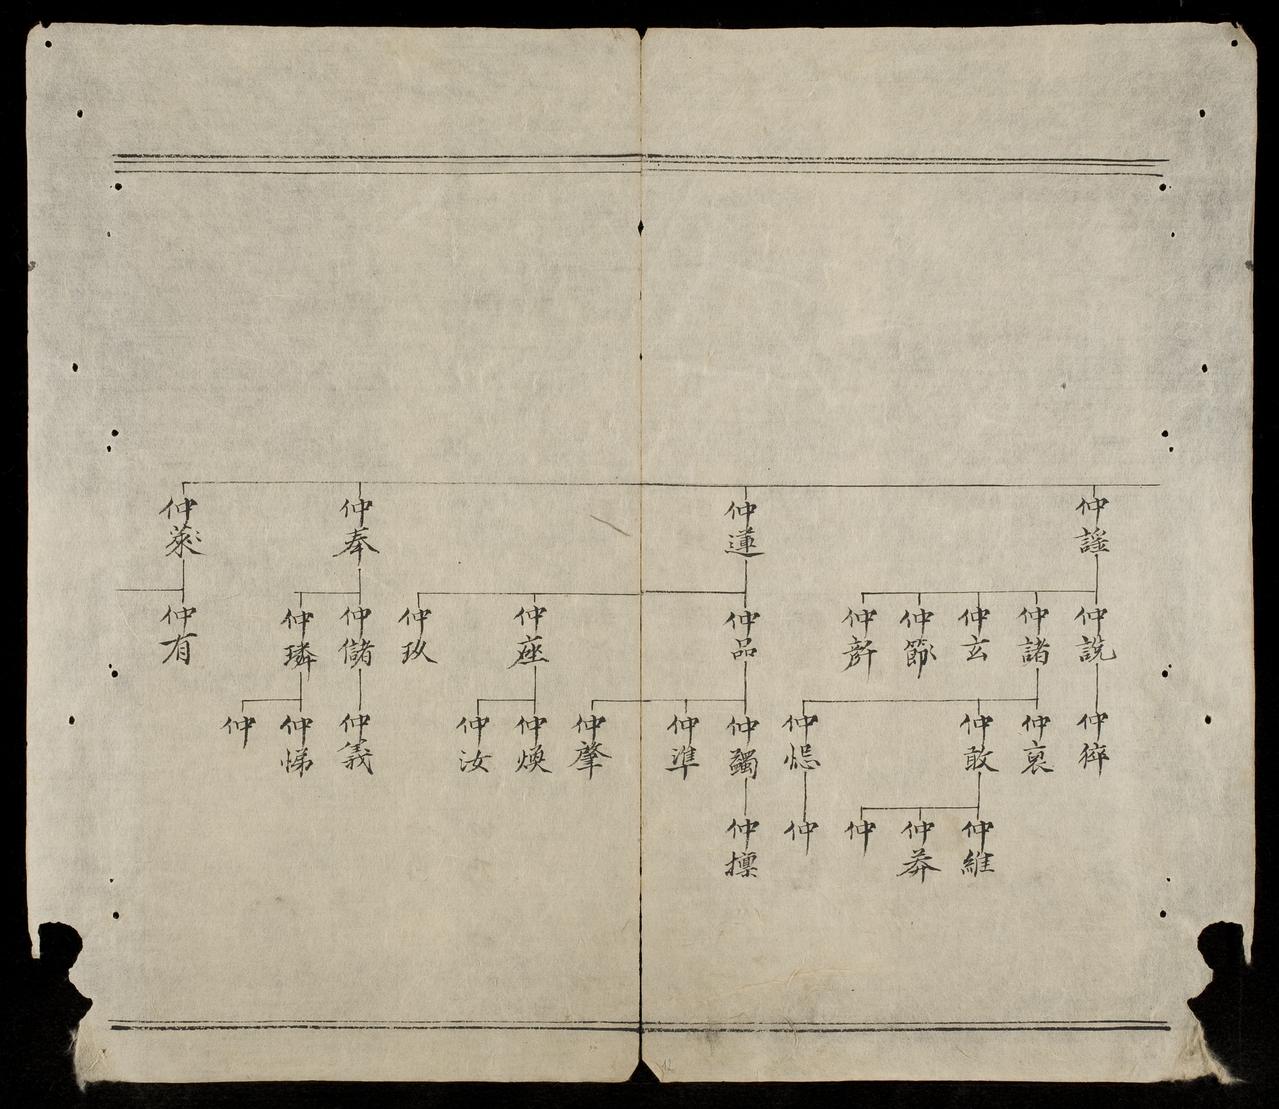 仲謠
仲蓮
仲奉
仲䓶
仲說
仲諸
仲玄
仲節
仲訢
仲品
仲座
仲玖
仲儲
仲璘
仲有
仲裒
仲敢
仲
仲蠲
仲準
仲肇
仲煥
仲汝
仲義
仲悌
仲
仲維
仲莽
仲
仲
仲